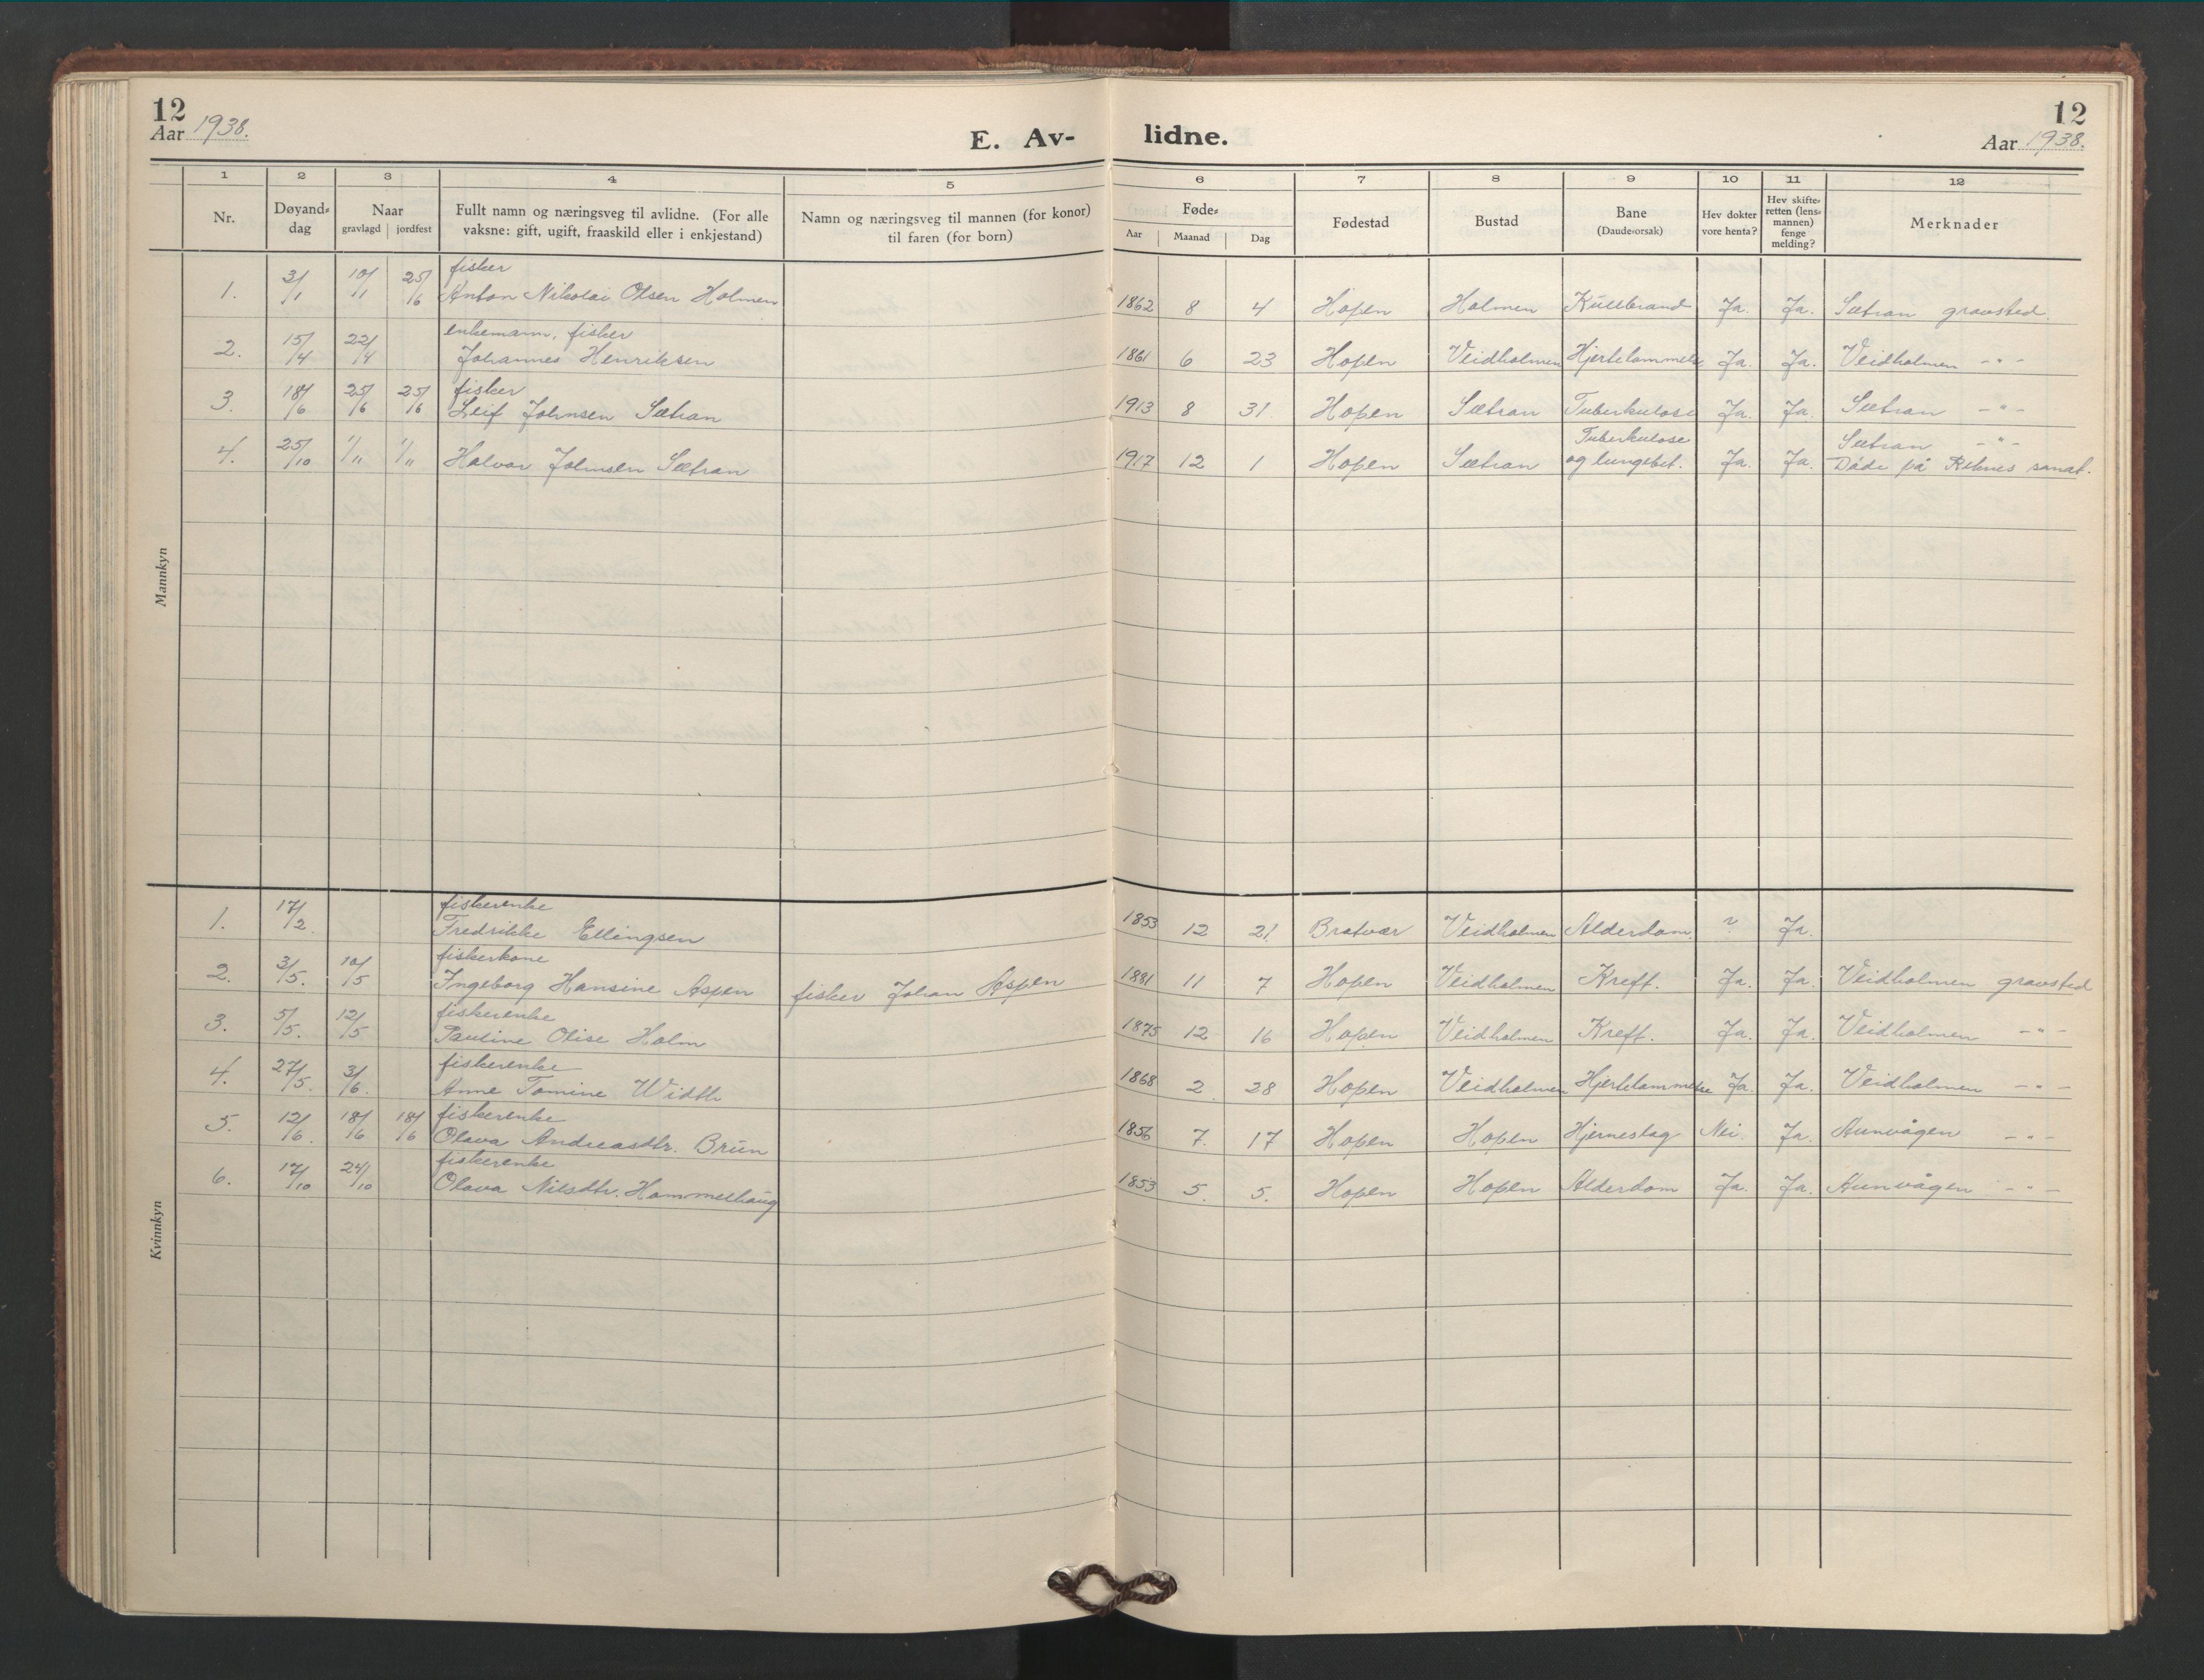 12
Aar 1938.
E. Av-
lidne.
12
Aar 1938.
1 2 3 4 5 6 7 8 9 10 11 12
Nr.
Døyand-
dag
Naar
gravlagd jordfest
Fullt namn og næringsveg til avlidne. (For alle
vaksne: gift, ugift, fraaskild eller i enkjestand)
Namn og næringsveg til mannen (for konor)
til faren (for born)
Føde-
Aar Maanad Dag
Fødestad
Bustad
Bane
(Daudeorsak)
Hev dokter
vore henta?
Hev skifte-
retten (lens-
mannen)
fenge
melding?
Merknader
Mannkyn
fisker
1. 3/1 10/1 25/6 Anton Nikolai Olsen Holmen 1862 8 4 Hopen Holmen Kullbrand Ja. Ja. Sætran gravsted.
enkemann, fisker
2. 15/4 22/4 Johannes Henriksen 1861 6 23 Hopen Veidholmen Hjertelammelse Ja. Ja. Veidholmen -"-
fisker
3. 18/6 25/6 25/6 Leif Johnsen Sætran 1913 8 31. Hopen Sætran Tuberkulose Ja. Ja. Sætran -"-
Tuberkulose Sætran -"-
4. 25/10 1/11 1/11 Halvor Johnsen Sætran 1917 12 1 Hopen Sætran og lungebet. Ja. Ja. Døde på Reknes sanat.
Kvinnkyn
fiskerenke
1. 17/2. Fredrikke Ellingsen 1853 12 21. Bratvær Veidholmen Alderdom. ? Ja.
fiskerkone
2. 3/5. 10/5 Ingeborg Hansine Aspen fisker Johan Aspen 1881 11 7 Hopen Veidholmen Kreft. Ja. Ja. Veidholmen gravsted
fiskerenke
3. 5/5. 12/5 Pauline Olise Holm 1875 12 16 Hopen Veidholmen Kreft. Ja. Ja. Veidholmen -"-
fiskerenke
4. 27/5. 3/6. Anne Tomine Width 1868 2 28 Hopen Veidholmen Hjertelammelse Ja. Ja. Veidholmen -"-
fiskerenke
5. 12/6. 18/6 18/6 Olava Andreasdtr. Brun 1856 7. 17 Hopen Hopen Hjerneslag Nei. Ja. Aunvågen -"-
fiskerenke
6. 17/10 24/10 Olava Nilsdtr. Hammelhaug 1853 5. 5. Hopen Hopen Alderdom Ja. Ja. Aunvågen -"-